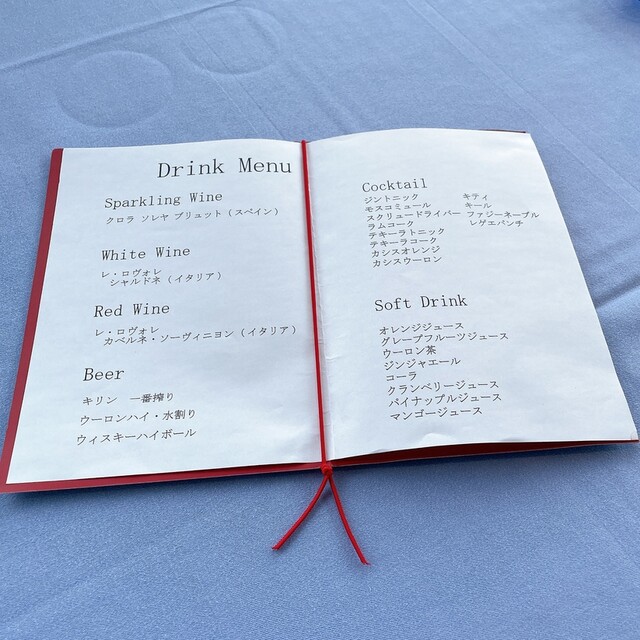 Drink Menu
Sparkling Wine
クロラ ソレヤ ブリュット (スペイン)
White Wine
レ・ロヴォレ
シャルドネ (イタリア)
Red Wine
レ・ロヴォレ
カベルネ・ソーヴィニヨン (イタリア)
Beer
キリン 一番搾り
ウーロンハイ・水割り
ウィスキーハイボール
Cocktail
ジントニック キティ
モスコミュール キール
スクリュードライバー ファジーネーブル
ラムコーク レゲエパンチ
テキーラトニック
テキーラコーク
カシスオレンジ
カシスウーロン
Soft Drink
オレンジジュース
グレープフルーツジュース
ウーロン茶
ジンジャエール
コーラ
クランベリージュース
パイナップルジュース
マンゴージュース